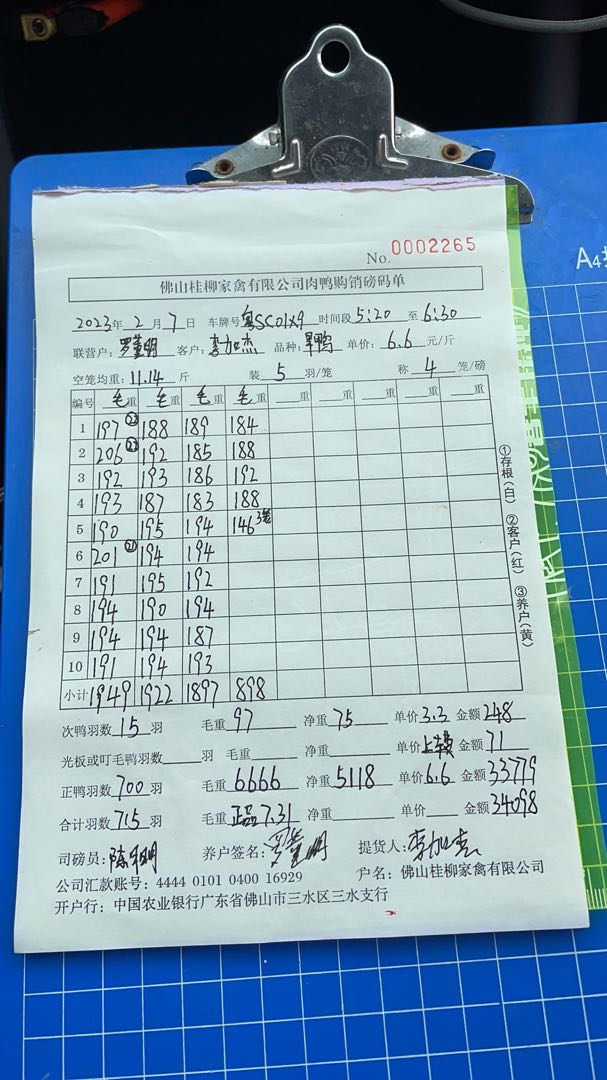 No. 0002265
佛山桂柳家禽有限公司肉鸭购销磅码单
2023年 2 月 7 日 车牌号 粤SC01X9 时间段 5:20 至 6:30
联营户: 客户: 李加杰 品种: 旱鸭 单价: 6.6 元/斤
空笼均重: 11.14 斤 装 5 羽/笼 称 4 笼/磅
编号 毛重 毛重 毛重 毛重 重 重 重 重
1 197 ㉒ 188 189 184
2 206 192 185 188
3 192 193 186 192
4 193 187 183 188
5 190 195 194 146 3笼
6 201 ㉑ 194 194
7 191 195 192
8 194 190 194
9 194 194 187
10 191 194 193
小计 1949 1922 1897 898
①存根(白) ②客户(红) ③养户(黄)
次鸭羽数 15 羽 毛重 97 净重 75 单价 3.3 金额 248
光板或叮毛鸭羽数 羽 毛重 净重 单价 金额 71
正鸭羽数 700 羽 毛重 6666 净重 5118 单价 6.6 金额 33779
合计羽数 715 羽 毛重 正品7.31 净重 单价 金额 34098
司磅员: 养户签名: 提货人: 李加杰
公司汇款账号: 4444 0101 0400 16929 户名: 佛山桂柳家禽有限公司
开户行: 中国农业银行广东省佛山市三水区三水支行
A4